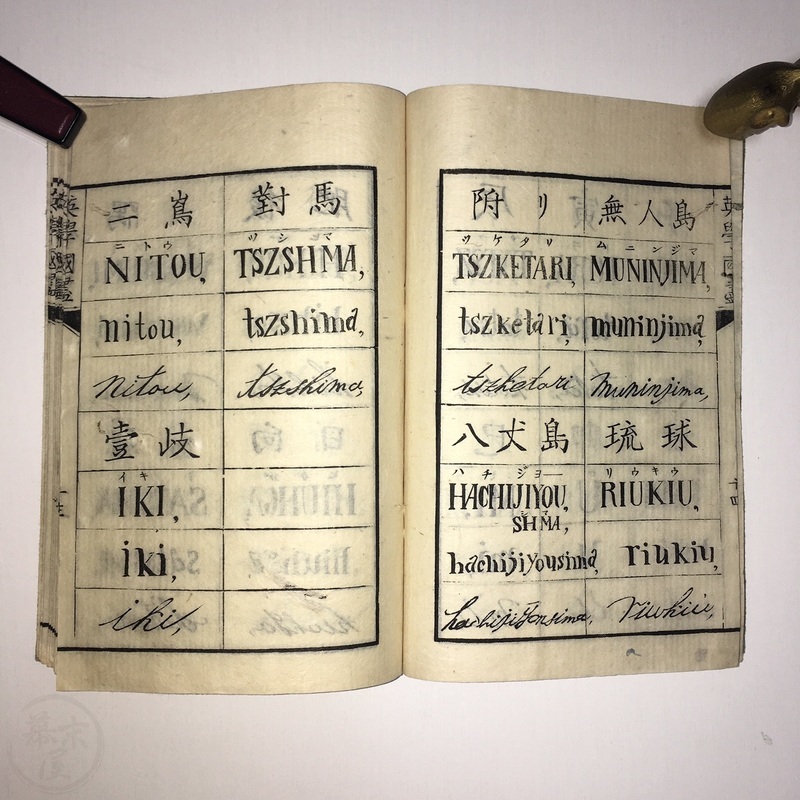 二嶌 對馬
ニトウ ツシマ
NITOU, TSZSHMA,
nitou, tszshima,
nitou, tszshima,
壹岐
イキ
IKI,
iki,
iki,
附リ 無人島
ツケタリ ムニンジマ
TSZKETARI, MUNINJIMA,
tszketari, muninjima,
tszketari muninjima,
八丈島 琉球
ハチジヨー リウキウ
HACHIJIYOU, RIUKIU,
シマ
SHMA,
hachijiyousima, riukiu,
hachijiyousima, riukiu,